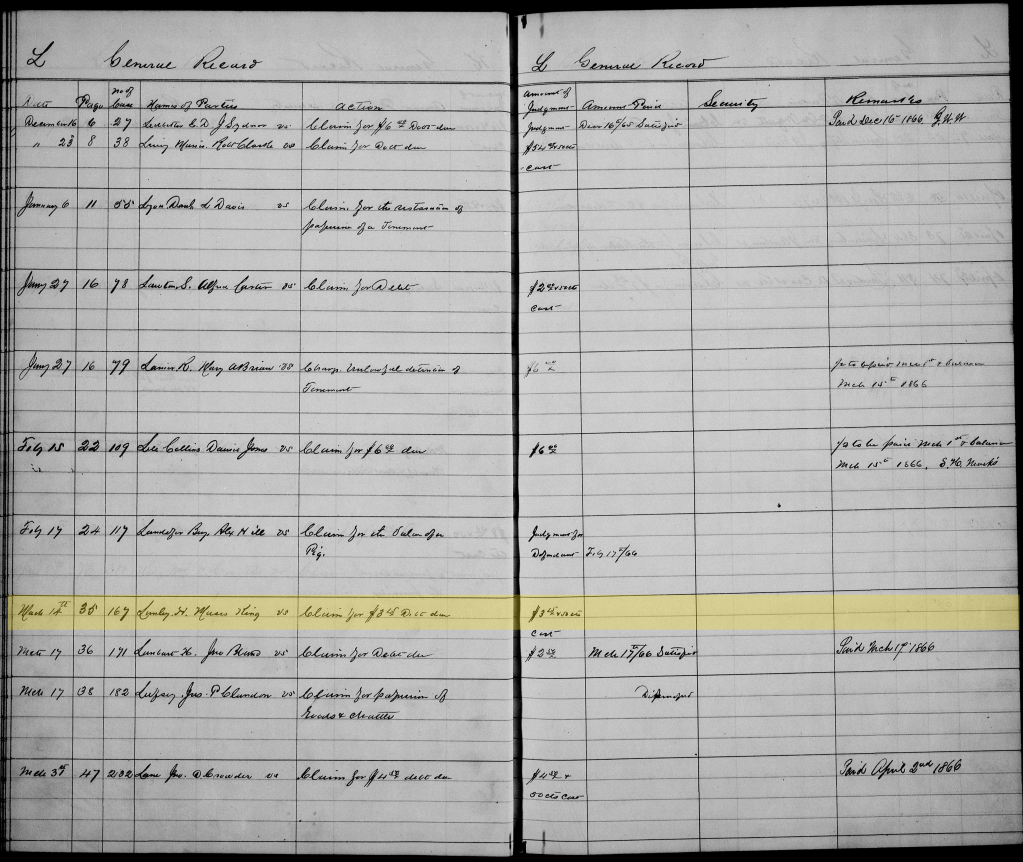 L General Record
Date Page No of Case Names of Parties action
December 16 6 27 C. D. J Sydnor vs Claim for $6 00 Debt due
" 23 8 38 Robt Clarke vs Claim for Debt due
January 6 11 55 Lyon Danl L Davis vs Claim for the restoration of
of a Tenement
Jany 27 16 78 Lawton S. Alfred Carter vs Claim for Debt
Jany 27 16 79 Lanier R. Mary A Brian vs Charge Unlawful detention of
Tenement
Feby 15 22 109 Collins Jones vs Claim for $6 00 due
"
Feby 17 24 117 Benj Alex Hill vs Claim for the Value of a
Pig.
March 14th 35 167 H. Moses King vs Claim for $3 Debt due
Mch 17 36 171 Lambert H. Jno vs Claim for Debt due
Mch 17 38 182 Jno. P Clundon vs Claim for possession of
Goods & chattles
Mch 31st 47 232 Lane Jno. D Crowder vs Claim for $4 50 debt due
L General Record
Amount of
Judgment Amount Paid Security Remarks
Judgment Decr 16th/65 Satisfied Paid Dec 16th 1866
$54 & 50cts
cost
$2 & 50cts
cost
$6 to be paid & balance
Mch 15th 1866
$6 00 to be paid Mch 1st & balance
Mch 15th 1866,
Judgment for
Defendant Feby 17th/66
$3 & 50cts
cost
$2 50 Mch 17th/66 Satisfied Paid Mch 17th 1866
Dismissed
$4 50 & Paid April 2nd 1866
50 cts cost